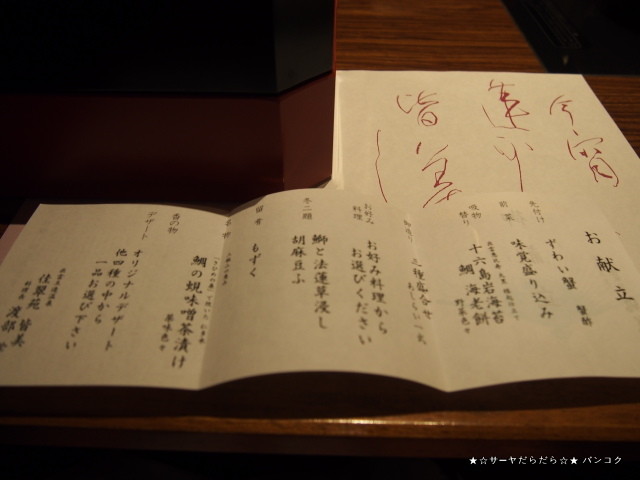 お献立
先付け
ずわい蟹 蟹酢
前菜
味覚盛り込み
吸物
十六島岩海苔
鯛 海老餅
野菜色々
お造り
七種盛合せ
あしらい一式
お好み
料理
お好み料理から
お選びください
冬二題
鰤と法蓮草浸し
胡麻豆ふ
留 肴
もずく
香の物
鯛の蜆味噌茶漬け
薬味色々
デザート
オリジナルデザート
他四種の中から
一品お選び下さい
佳翠苑 皆美
渡部
今宵
皆美
★☆サーヤだらだら☆★ バンコク